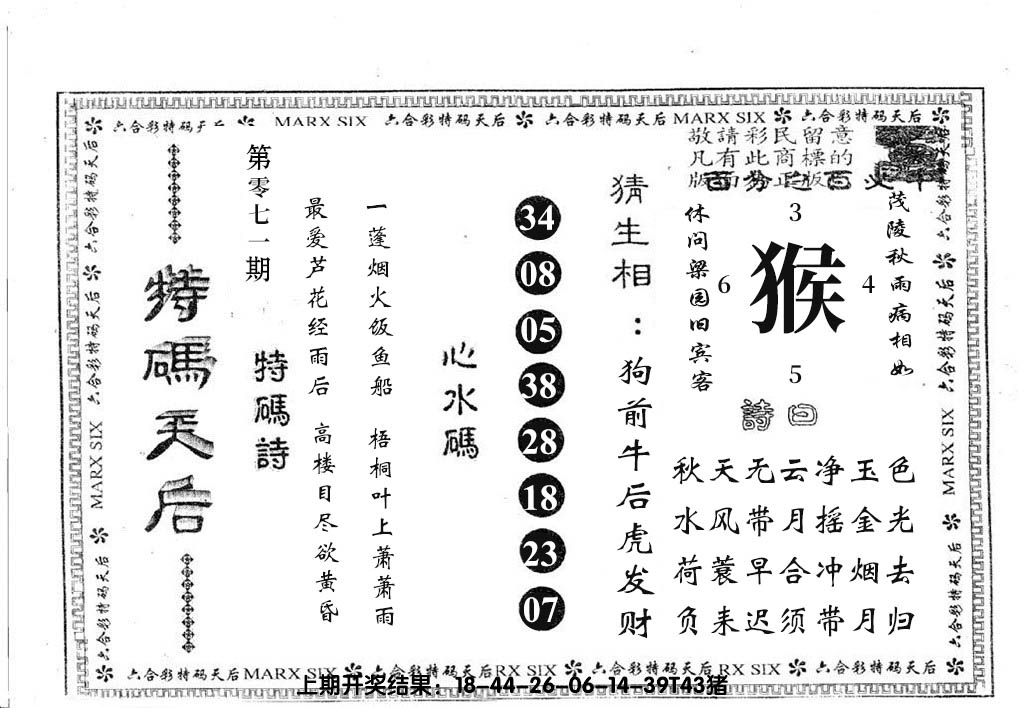 MARX SIX 六合彩特码天后 六合彩特码天后 MARX SIX 六合彩特码天后
敬請彩民留意
凡有此商標的
特碼天后
第零七一期
特碼詩
最爱芦花经雨后 高楼目尽欲黄昏
一蓬烟火饭鱼船 梧桐叶上萧萧雨
心水碼
34
08
05
38
28
18
23
07
猜生相：狗前牛后虎发财
休问梁园旧宾客
3
6 猴 4
5
茂陵秋雨病相如
詩曰
秋天无云净玉色
水风带月摇金光
荷蓑早合冲烟去
负耒迟须带月归
六合彩特码天后 MARX SIX 六合彩特码天后
六合彩特码天后 六合彩特码天后 MARX SIX 六合彩特码天后
六合彩特码天后 六合彩特码天后 MARX SIX 六合彩特码天后
上期开奖结果：18-44-26-06-14-39T43猪